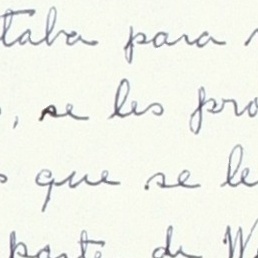 taba para
, se les pro
s que se le
parte de W